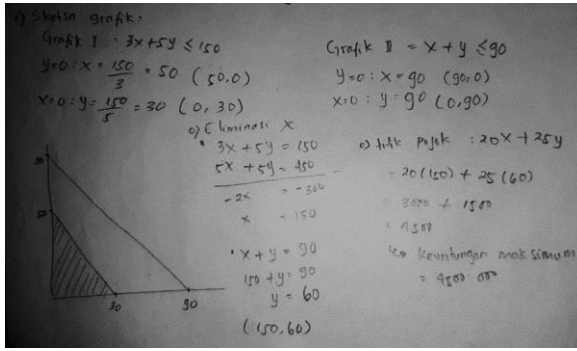 o) Sketsa grafik:
Grafik I = 3x+5y ≤ 150
y=0 : x = 150/3 = 50 (50,0)
x=0 : y = 150/5 = 30 (0, 30)
Grafik II = x + y ≤ 90
y=0 : x = 90 (90,0)
x=0 : y = 90 (0,90)
o) Eliminasi x
• 3x + 5y = 150
5x + 5y = 450
-2x = -300
x = 150
• x + y = 90
150 + y = 90
y = 60
(150, 60)
o) titik pojok : 20x + 25y
= 20 (150) + 25 (60)
= 3000 + 1500
= 4500
↳ keuntungan maksimum
= 4500.000
90
30
90